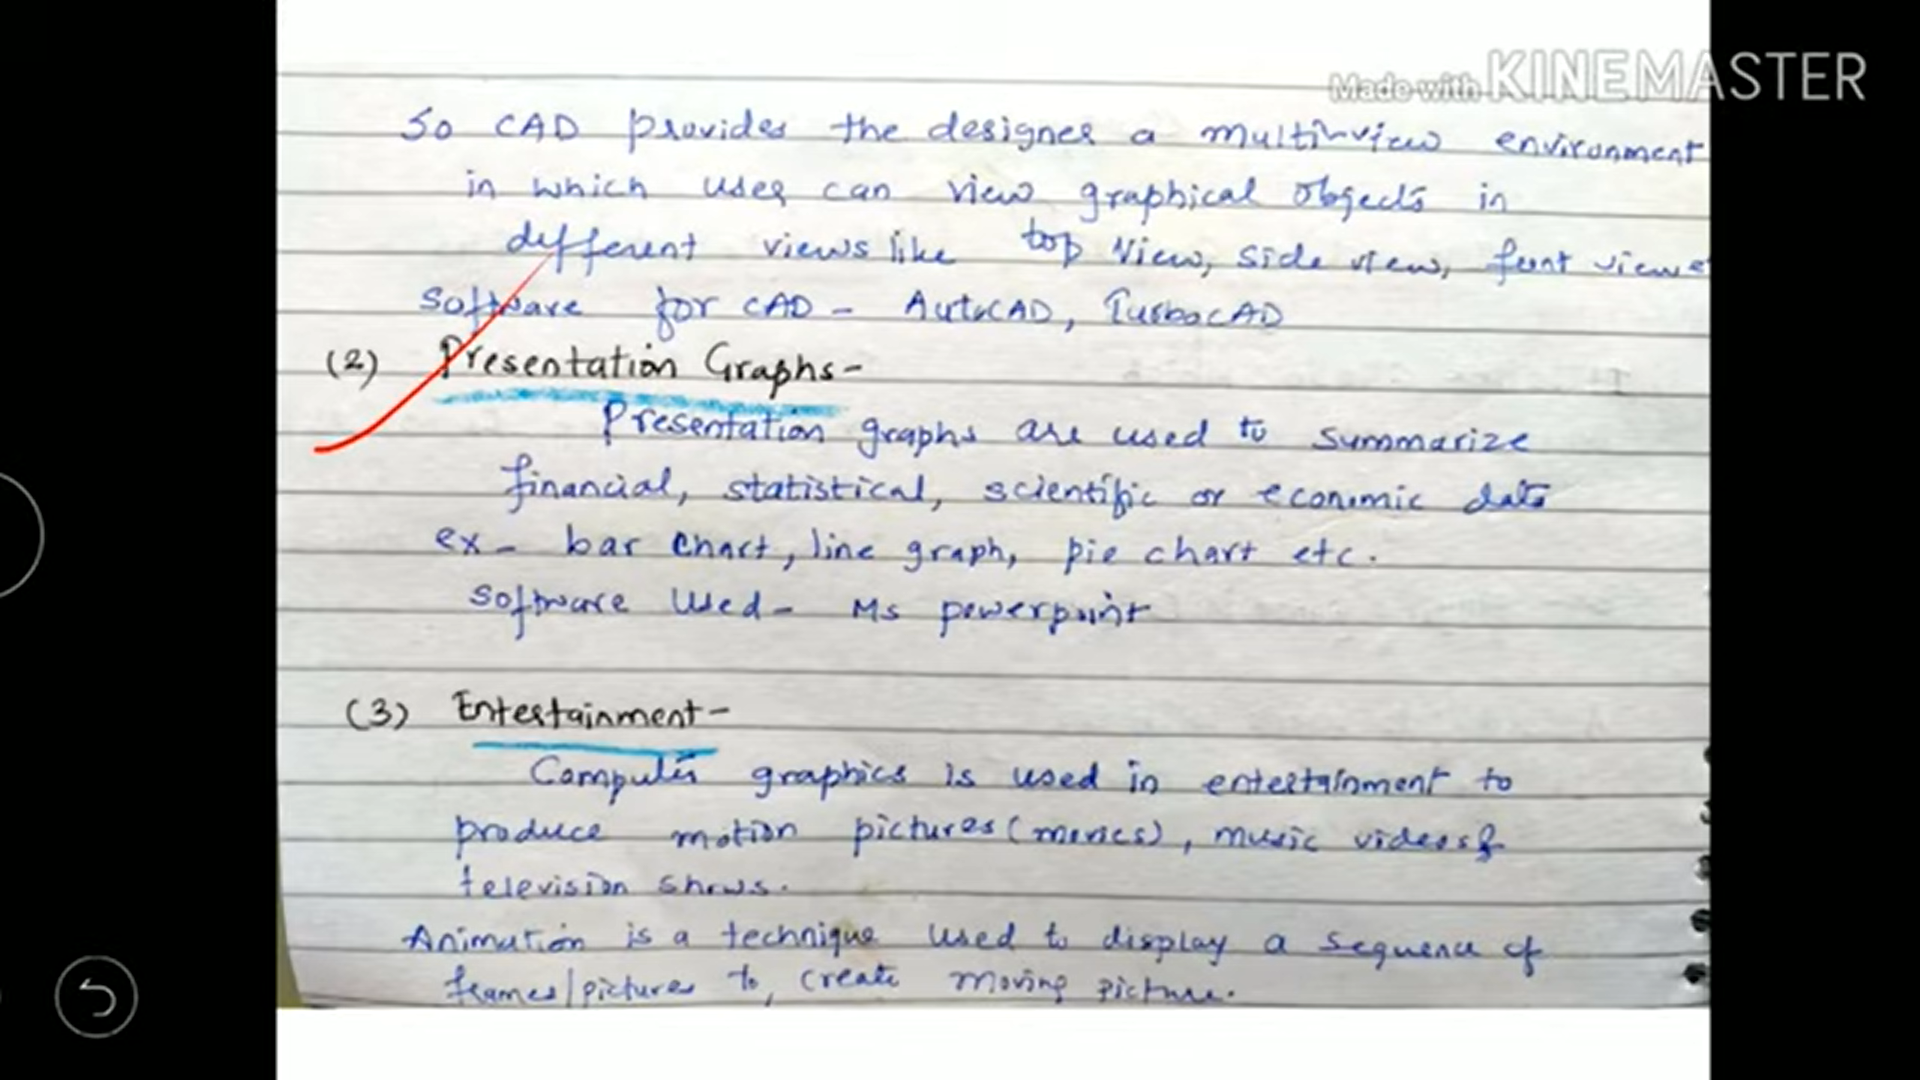 Made with KINEMASTER
So CAD provides the designer a multi-view environment
in which user can view graphical objects in
different views like top view, side view, front views
Software for CAD - AutoCAD, TurboCAD
(2) Presentation Graphs-
Presentation graphs are used to summarize
financial, statistical, scientific or economic data
ex- bar chart, line graph, pie chart etc.
Software Used- Ms powerpoint
(3) Entertainment-
Computer graphics is used in entertainment to
produce motion pictures (movies), music videos &
television shows.
Animation is a technique used to display a sequence of
frames/pictures to, create moving picture.